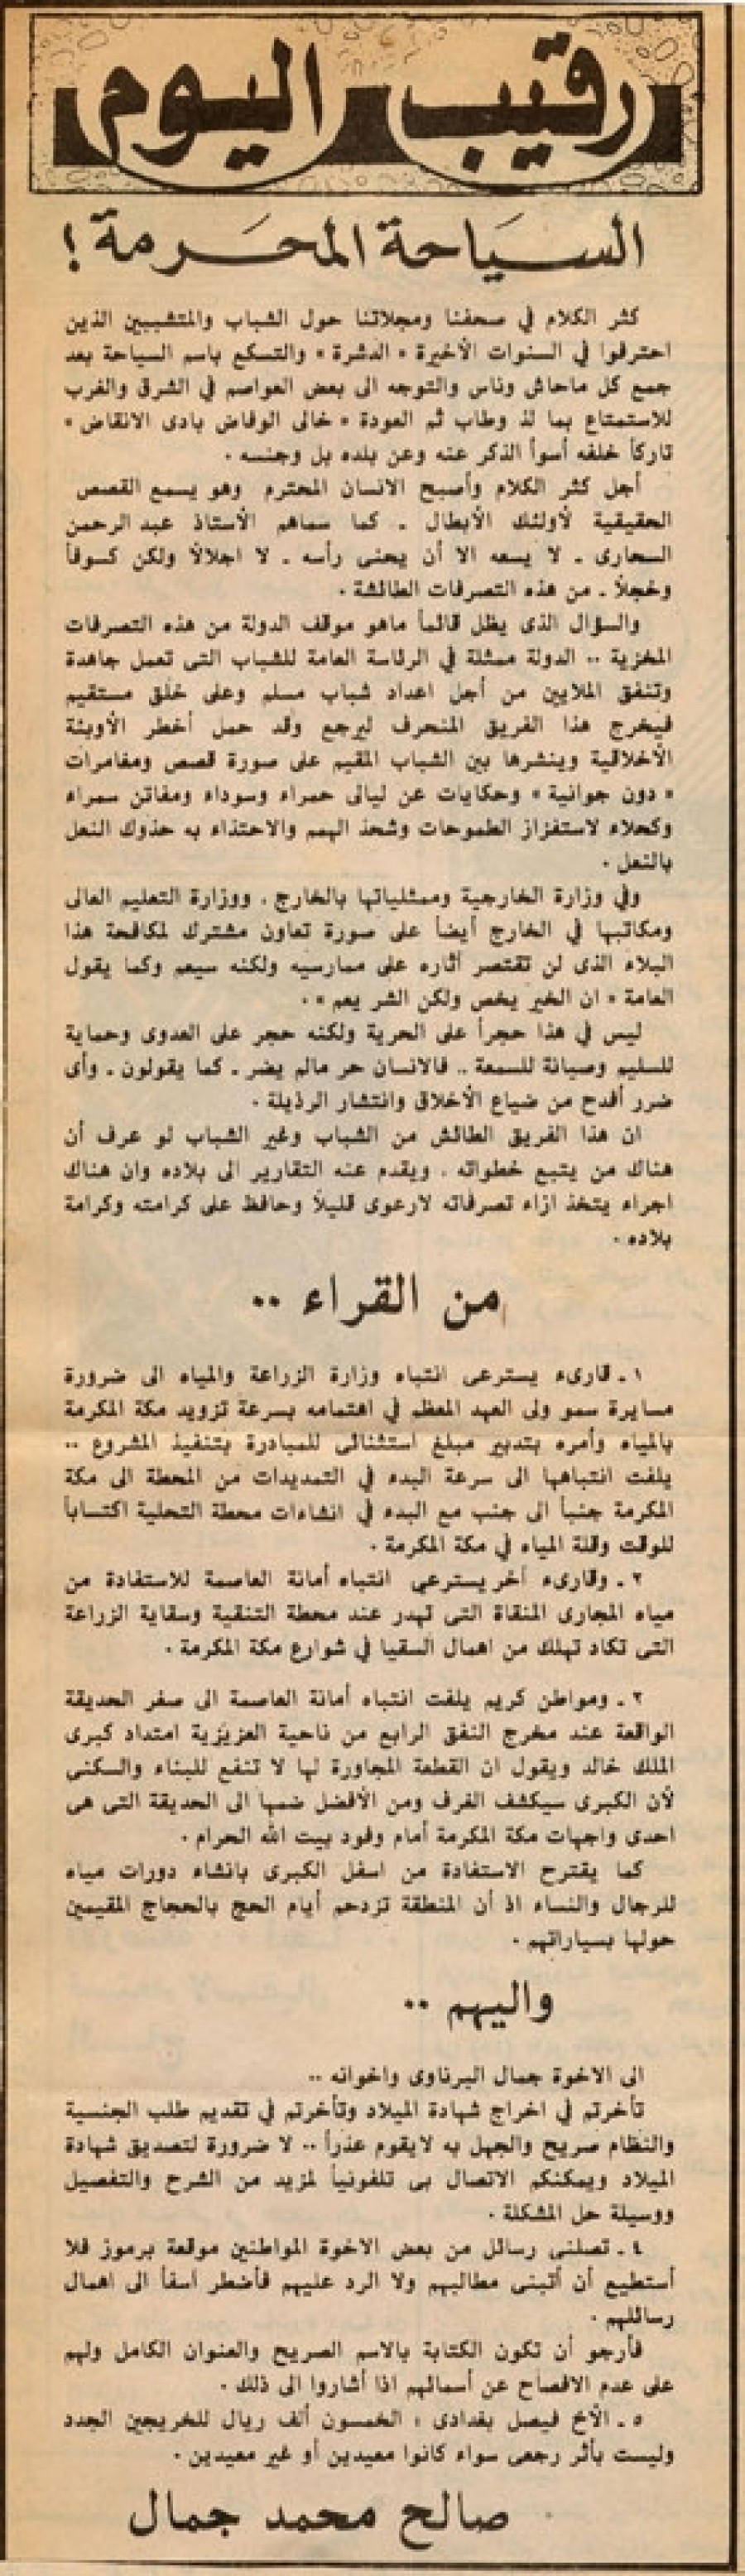 رقيب اليوم
السياحة المحرمة !
كثر الكلام في صحفنا ومجلاتنا حول الشباب والمتشببين الذين
احترفوا في السنوات الأخيرة « الدشرة » والتسكع باسم السياحة بعد
جمع كل ماحاش وناس والتوجه الى بعض العواصم في الشرق والغرب
للاستمتاع بما لذ وطاب ثم العودة « خالى الوفاض بادى الانقاض »
تاركاً خلفه أسوأ الذكر عنه وعن بلده بل وجنسه .
أجل كثر الكلام وأصبح الانسان المحترم وهو يسمع القصص
الحقيقية لأولئك الأبطال - كما سماهم الأستاذ عبد الرحمن
السحارى - لا يسعه الا أن يحنى رأسه - لا اجلالاً ولكن كسوفاً
وخجلاً - من هذه التصرفات الطائشة .
والسؤال الذى يظل قائماً ماهو موقف الدولة من هذه التصرفات
المخزية .. الدولة ممثلة في الرئاسة العامة للشباب التى تعمل جاهدة
وتنفق الملايين من أجل اعداد شباب مسلم وعلى خلق مستقيم
فيخرج هذا الفريق المنحرف ليرجع وقد حمل أخطر الأوبئة
الأخلاقية وينشرها بين الشباب المقيم على صورة قصص ومغامرات
« دون جوانية » وحكايات عن ليالى حمراء وسوداء ومفاتن سمراء
وكحلاء لاستفزاز الطموحات وشحذ الهمم والاحتذاء به حذوك النعل
بالنعل .
وفي وزارة الخارجية وممثلياتها بالخارج . ووزارة التعليم العالى
ومكاتبها في الخارج أيضاً على صورة تعاون مشترك لمكافحة هذا
البلاء الذى لن تقتصر أثاره على ممارسيه ولكنه سيعم وكما يقول
العامة « ان الخير يخص ولكن الشر يعم » .
ليس في هذا حجراً على الحرية ولكنه حجر على العدوى وحماية
للسليم وصيانة للسمعة .. فالانسان حر مالم يضر - كما يقولون - وأى
ضرر أفدح من ضياع الأخلاق وانتشار الرذيلة .
ان هذا الفريق الطائش من الشباب وغير الشباب لو عرف أن
هناك من يتبع خطواته . ويقدم عنه التقارير الى بلاده وان هناك
اجراء يتخذ ازاء تصرفاته لارعوى قليلاً وحافظ على كرامته وكرامة
بلاده .
من القراء ..
١ - قارىء يسترعى انتباه وزارة الزراعة والمياه الى ضرورة
مسايرة سمو ولى العهد المعظم في اهتمامه بسرعة تزويد مكة المكرمة
بالمياه وأمره بتدبير مبلغ استثنائى للمبادرة بتنفيذ المشروع ..
يلفت انتباهها الى سرعة البدء في التمديدات من المحطة الى مكة
المكرمة جنباً الى جنب مع البدء في انشاءات محطة التحلية اكتساباً
للوقت وقلة المياه في مكة المكرمة .
٢ - وقارىء أخر يسترعى انتباه أمانة العاصمة للاستفادة من
مياه المجارى المنقاة التى تهدر عند محطة التنقية وسقاية الزراعة
التى تكاد تهلك من اهمال السقيا في شوارع مكة المكرمة .
٣ - ومواطن كريم يلفت انتباه أمانة العاصمة الى صغر الحديقة
الواقعة عند مخرج النفق الرابع من ناحية العزيزية امتداد كبرى
الملك خالد ويقول ان القطعة المجاورة لها لا تنفع للبناء والسكنى
لأن الكبرى سيكشف الغرف ومن الأفضل ضمها الى الحديقة التى هى
احدى واجهات مكة المكرمة أمام وفود بيت الله الحرام .
كما يقترح الاستفادة من اسفل الكبرى بانشاء دورات مياه
للرجال والنساء اذ أن المنطقة تزدحم أيام الحج بالحجاج المقيمين
حولها بسياراتهم .
واليهم ..
الى الاخوة جمال البرناوى واخوانه ..
تأخرتم في اخراج شهادة الميلاد وتأخرتم في تقديم طلب الجنسية
والنظام صريح والجهل به لايقوم عذراً .. لا ضرورة لتصديق شهادة
الميلاد ويمكنكم الاتصال بى تلفونياً لمزيد من الشرح والتفصيل
ووسيلة حل المشكلة .
٤ - تصلنى رسائل من بعض الاخوة المواطنين موقعة برموز فلا
أستطيع أن أتبنى مطالبهم ولا الرد عليهم فأضطر أسفاً الى اهمال
رسائلهم .
فأرجو أن تكون الكتابة بالاسم الصريح والعنوان الكامل ولهم
على عدم الافصاح عن أسمائهم اذا أشاروا الى ذلك .
٥ - الأخ فيصل بغدادى : الخمسون ألف ريال للخريجين الجدد
وليست بأثر رجعى سواء كانوا معيدين أو غير معيدين .
صالح محمد جمال